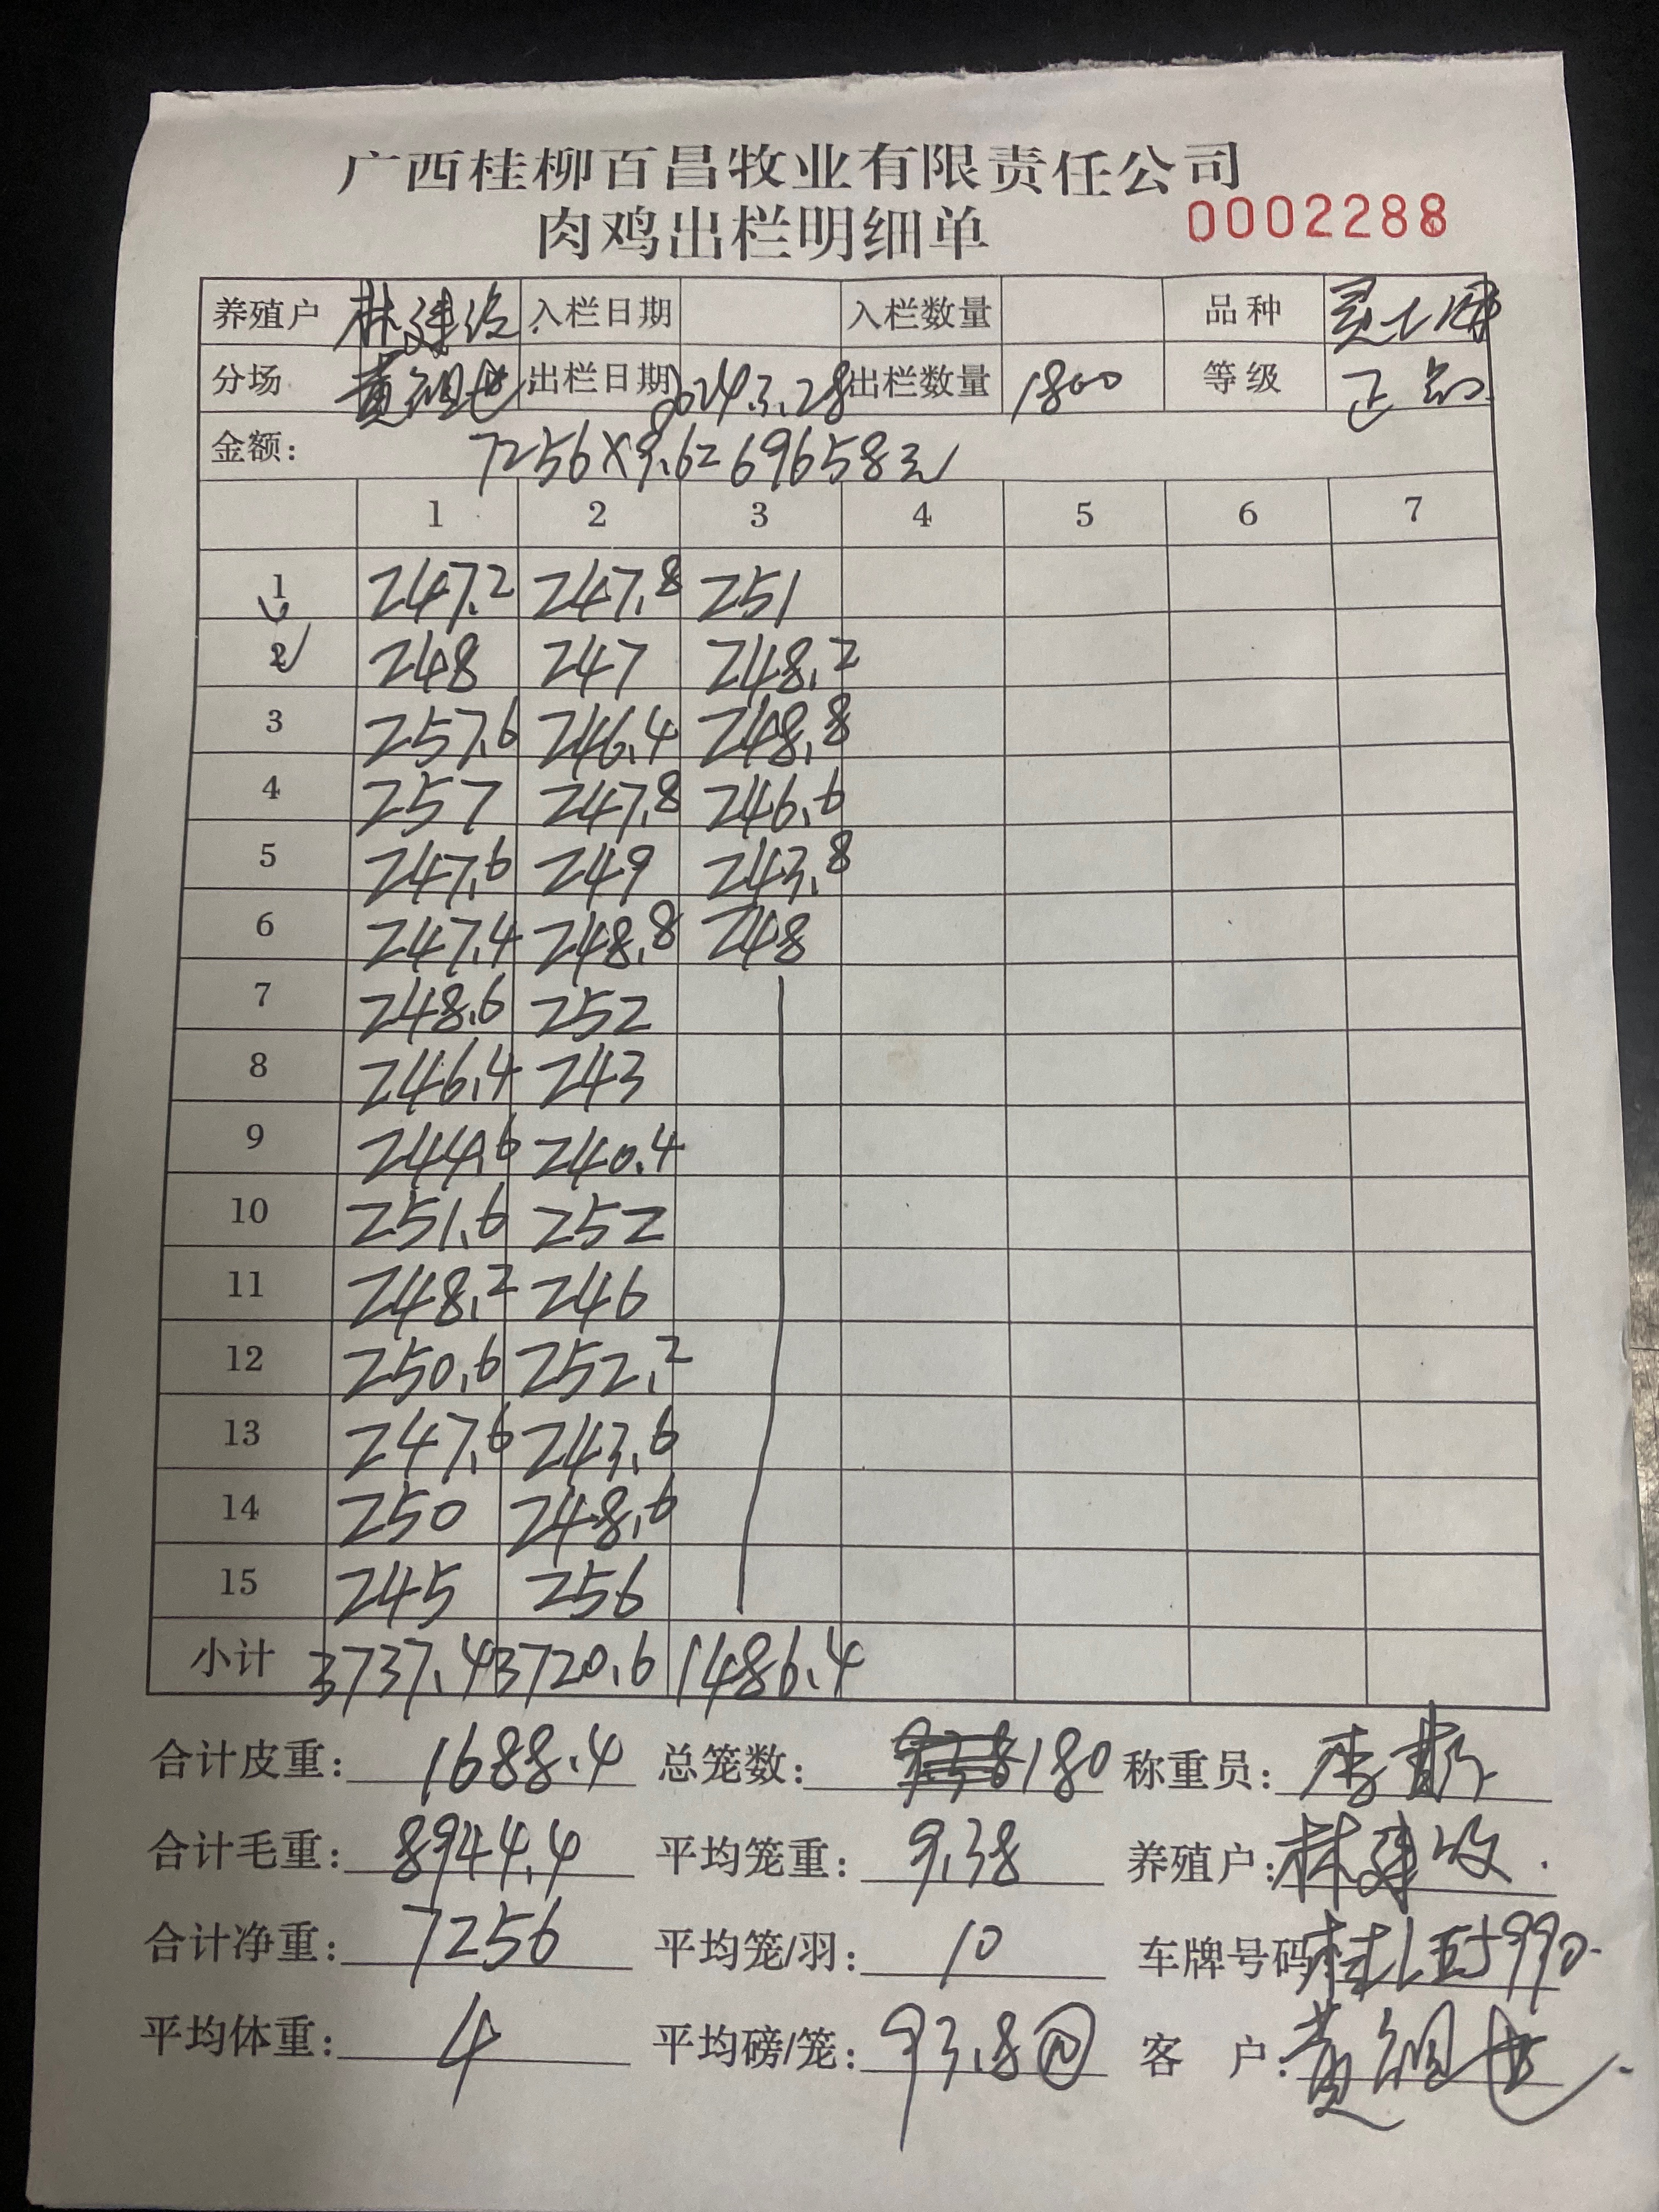 广西桂柳百昌牧业有限责任公司
肉鸡出栏明细单 0002288
养殖户 林建 入栏日期 入栏数量 品种 灵
分场 黄 出栏日期 2024.3.28 出栏数量 1800 等级 正
金额: 7256×9.6=69658元
1 2 3 4 5 6 7
1 247.2 247.8 251
2 248 247 248.2
3 257.6 246.4 248.8
4 257 247.8 246.6
5 247.6 249 243.8
6 247.4 248.8 248
7 248.6 252
8 246.4 243
9 244.6 240.4
10 251.6 252
11 248.2 246
12 250.6 252.2
13 247.6 243.6
14 250 248.6
15 245 256
小计 3737.4 3720.6 1486.4
合计皮重: 1688.4 总笼数: 180 称重员: 李
合计毛重: 8944.4 平均笼重: 9.38 养殖户: 林建
合计净重: 7256 平均笼/羽: 10 车牌号码 桂 990
平均体重: 4 平均磅/笼: 93.8 ⑩ 客 户: 黄